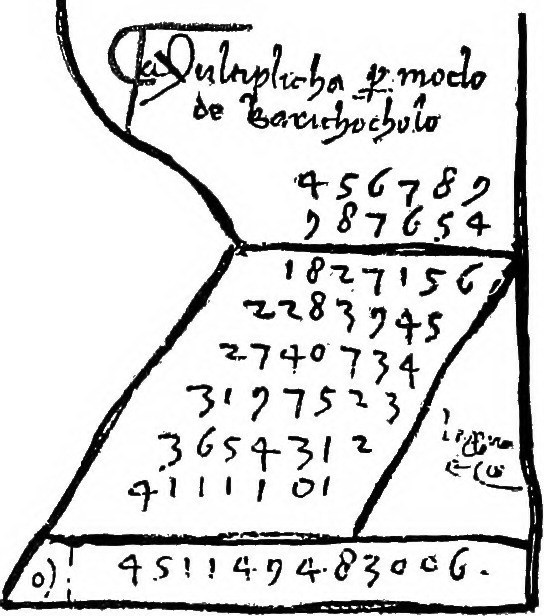 La Multiplicha ꝑ modo
de Barichochulo
456789
987654
1827156
2283945
2740734
3197523
3654312
4111101
0) 451149483006.